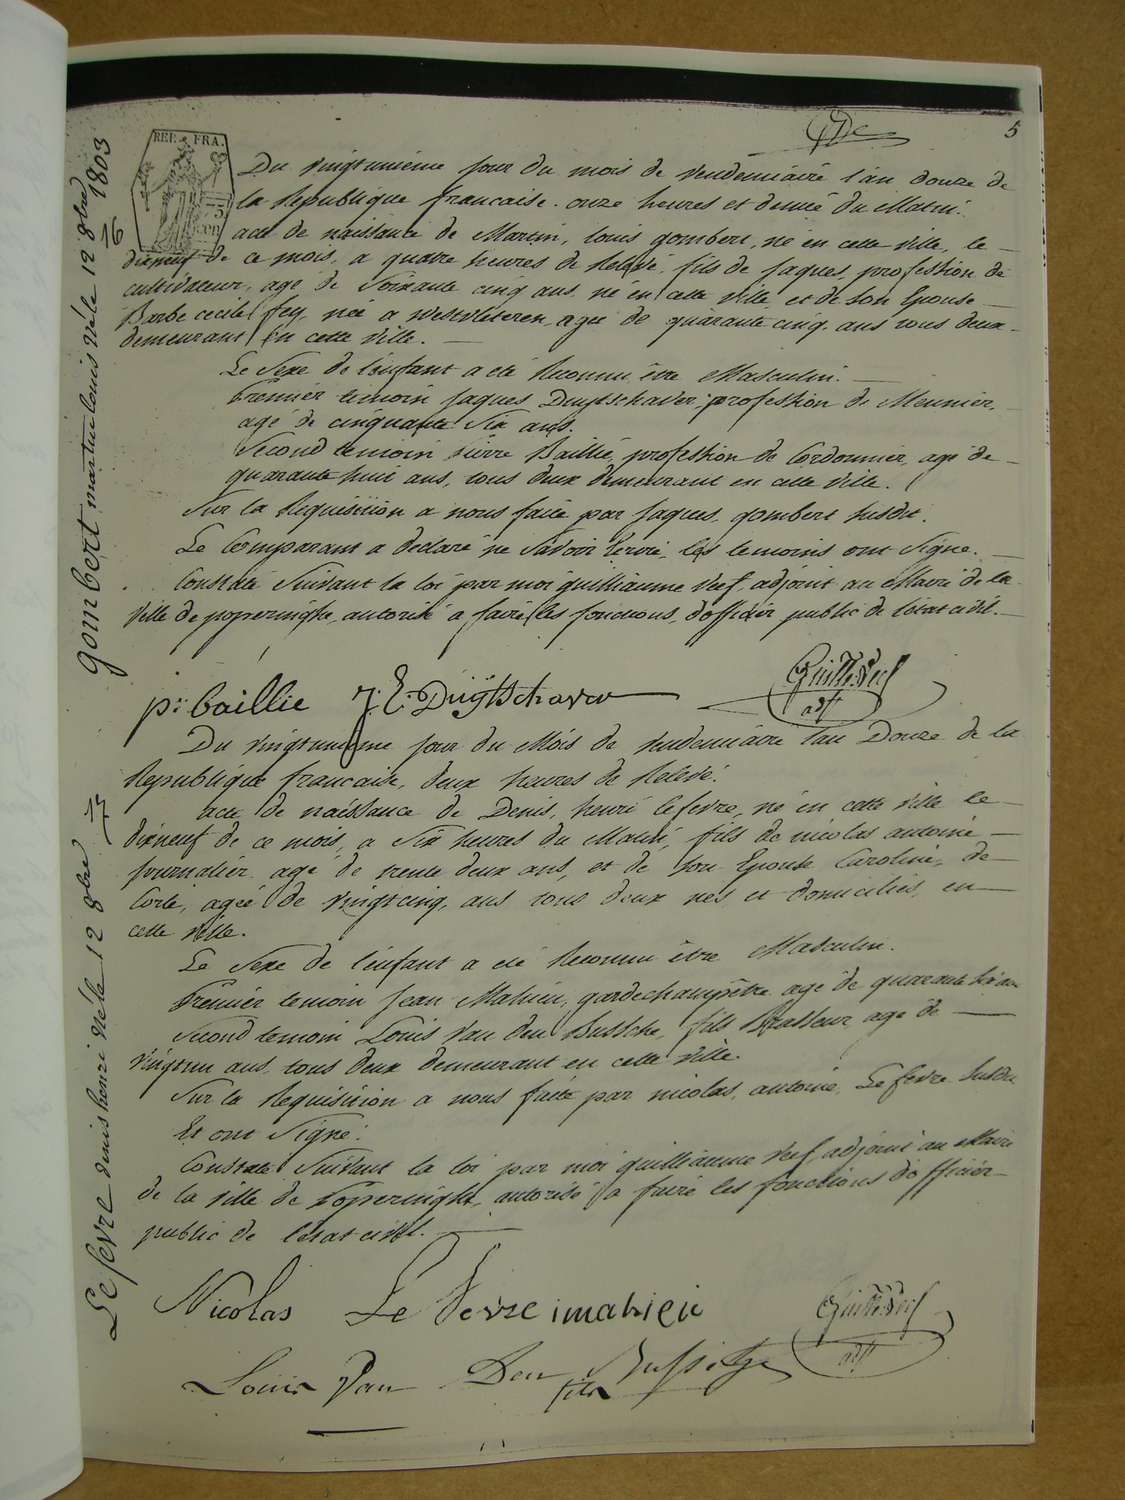 5
REP. FRA.
Du vingtunieme jour du mois de vendemiaire l'an douze de
la Republique francaise. onze heures et demie du Matin.
acte de naissance de Martin, Louis gombert, né en cette ville, le
dixneuf de ce mois, a quatre heures de Relevé, fils de jaques, profession de
cultivateur, agé de Soixante cinq ans, né en cette ville et de Son Epouse
Barbe cecile fey, née a westvleteren, agée de quarante cinq ans tous deux
demeurant en cette ville.
Le Sexe de l'enfant a eté Reconnu être Masculin.
Premier temoin jaques Duytschaver, profession de Meunier,
agé de cinquante Six ans.
Second temoin pierre Baillie, profession de Cordonnier, agé de
quarante huit ans, tous deux demeurant en cette ville.
Sur la Requisition a nous faite par jaques gombert susdit.
Le Comparant a declaré ne Savoir Ecrire, les temoins ont Signé.
Constaté Suivant la loi par moi guilliaume Veuf adjoint au Maire de la
ville de poperinghe, autorisé a faire les fonctions d'officier public de l'etat civil.
p: baillie J: E: Duÿtschaver
adjt
gombert martin louis né le 12 8bre 1803
Du vingtunieme jour du Mois de vendemiaire l'an Douze de la
Republique francaise, deux heures de Relevé.
acte de naissance de Denis, henri lefevre, né en cette ville le
dixneuf de ce mois, a Six heures du Matin, fils de nicolas antoine
journalier agé de trente deux ans, et de Son Epouse Caroline, de
Corte, agée de vingtcinq ans tous deux nés et domiciliés en
cette ville.
Le Sexe de l'enfant a eté Reconnu être Masculin.
Premier temoin Jean Mahieu, gardechampêtre agé de quarante six ans
Second temoin Louis Van den Bussche, fils Brasseur agé de
vingtun ans, tous deux demeurant en cette ville.
Sur la Requisition a nous faite par nicolas, antoine, Lefevre Susdit
Et ont Signé.
Constaté Suivant la loi par moi guilliaume Veuf adjoint au Maire
de la ville de Poperinghe, autorisé a faire les fonctions d'officier
public de l'etat civil.
Nicolas Le Fevre imahieu
adjt
Louis Van Den Bussche
fils
Lefevre denis henri né le 12 8bre